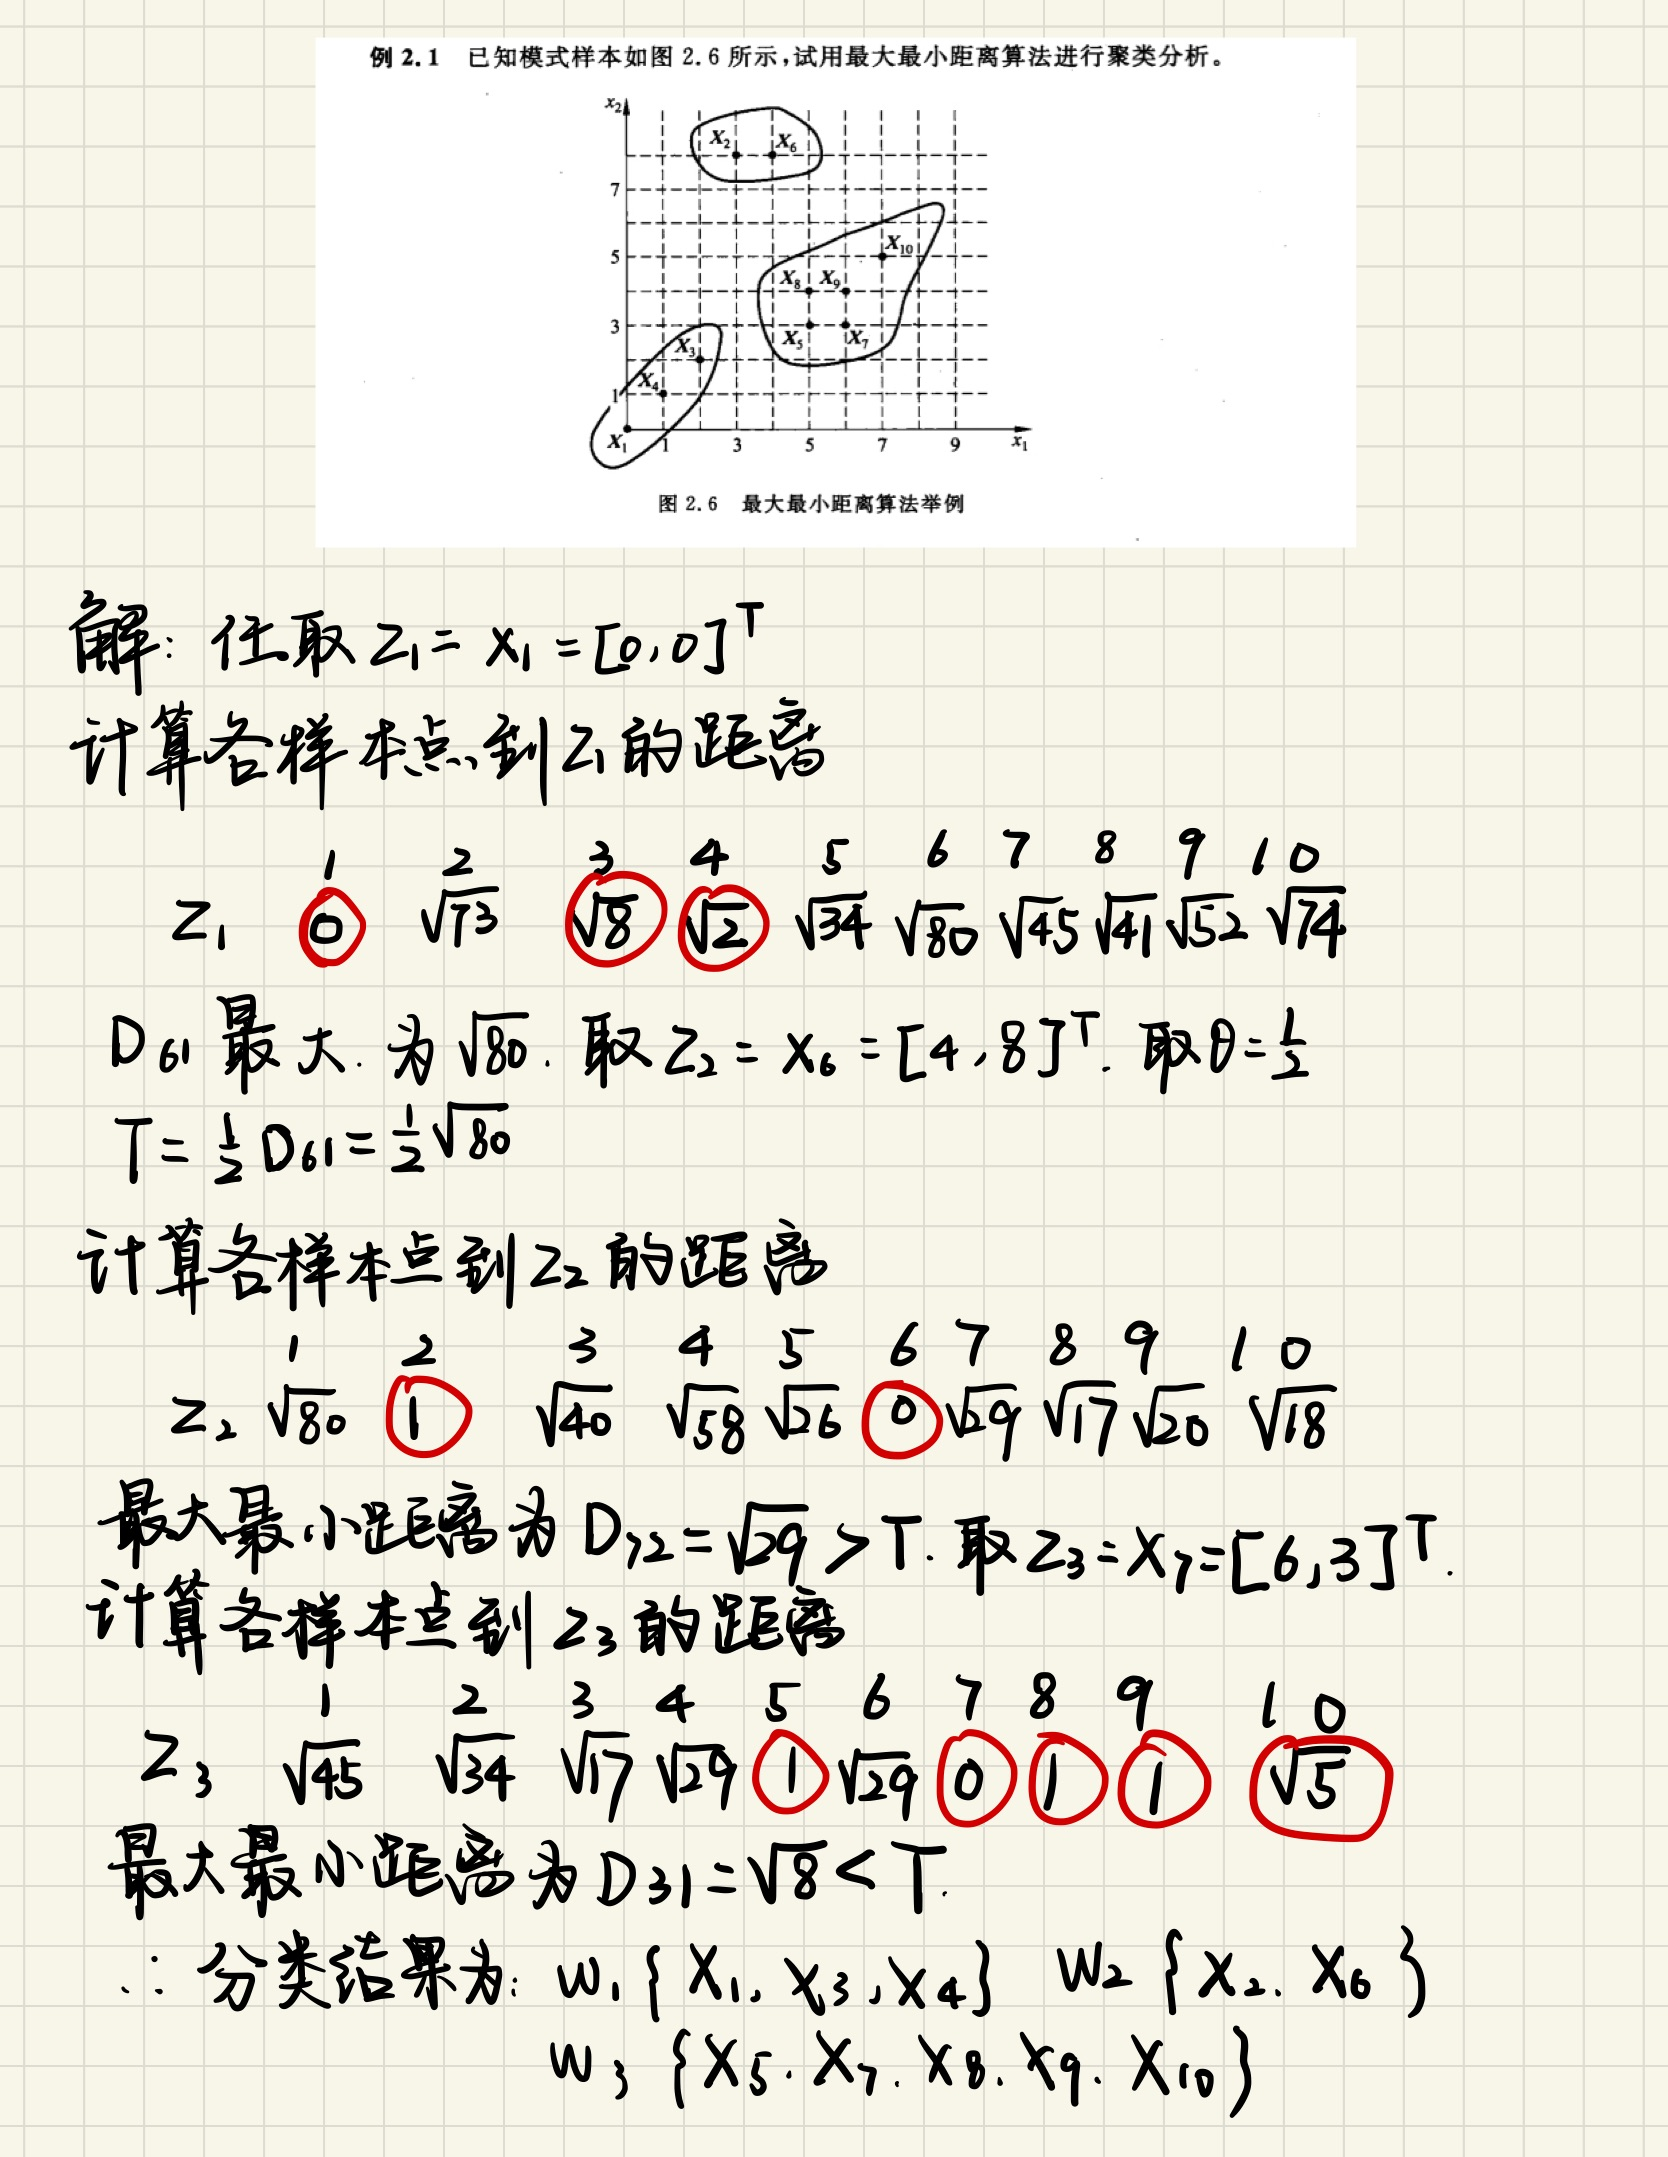 例 2.1 已知模式样本如图 2.6 所示,试用最大最小距离算法进行聚类分析。
x₂
X₂ X₆
7
X₁₀
5
X₈ X₉
3
X₅ X₇
X₃
X₄
1
X₁ 1 3 5 7 9 x₁
图 2.6 最大最小距离算法举例
解: 任取 Z₁ = X₁ = [0,0]ᵀ
计算各样本点到Z₁的距离
1 2 3 4 5 6 7 8 9 10
Z₁ 0 √73 √8 √2 √34 √80 √45 √41 √52 √74
D₆₁ 最大. 为 √80. 取 Z₂ = X₆ = [4,8]ᵀ. 取θ=1/2
T = 1/2 D₆₁ = 1/2 √80
计算各样本点到Z₂的距离
1 2 3 4 5 6 7 8 9 10
Z₂ √80 1 √40 √58 √26 0 √29 √17 √20 √18
最大最小距离为 D₇₂ = √29 > T. 取 Z₃ = X₇ = [6,3]ᵀ.
计算各样本点到Z₃的距离
1 2 3 4 5 6 7 8 9 10
Z₃ √45 √34 √17 √29 1 √29 0 1 1 √5
最大最小距离为 D₃₁ = √8 < T.
∴ 分类结果为: W₁ {X₁, X₃, X₄} W₂ {X₂. X₆}
W₃ {X₅. X₇. X₈. X₉. X₁₀}